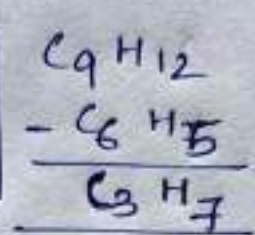 C9 H12
- C6 H5
C3 H7